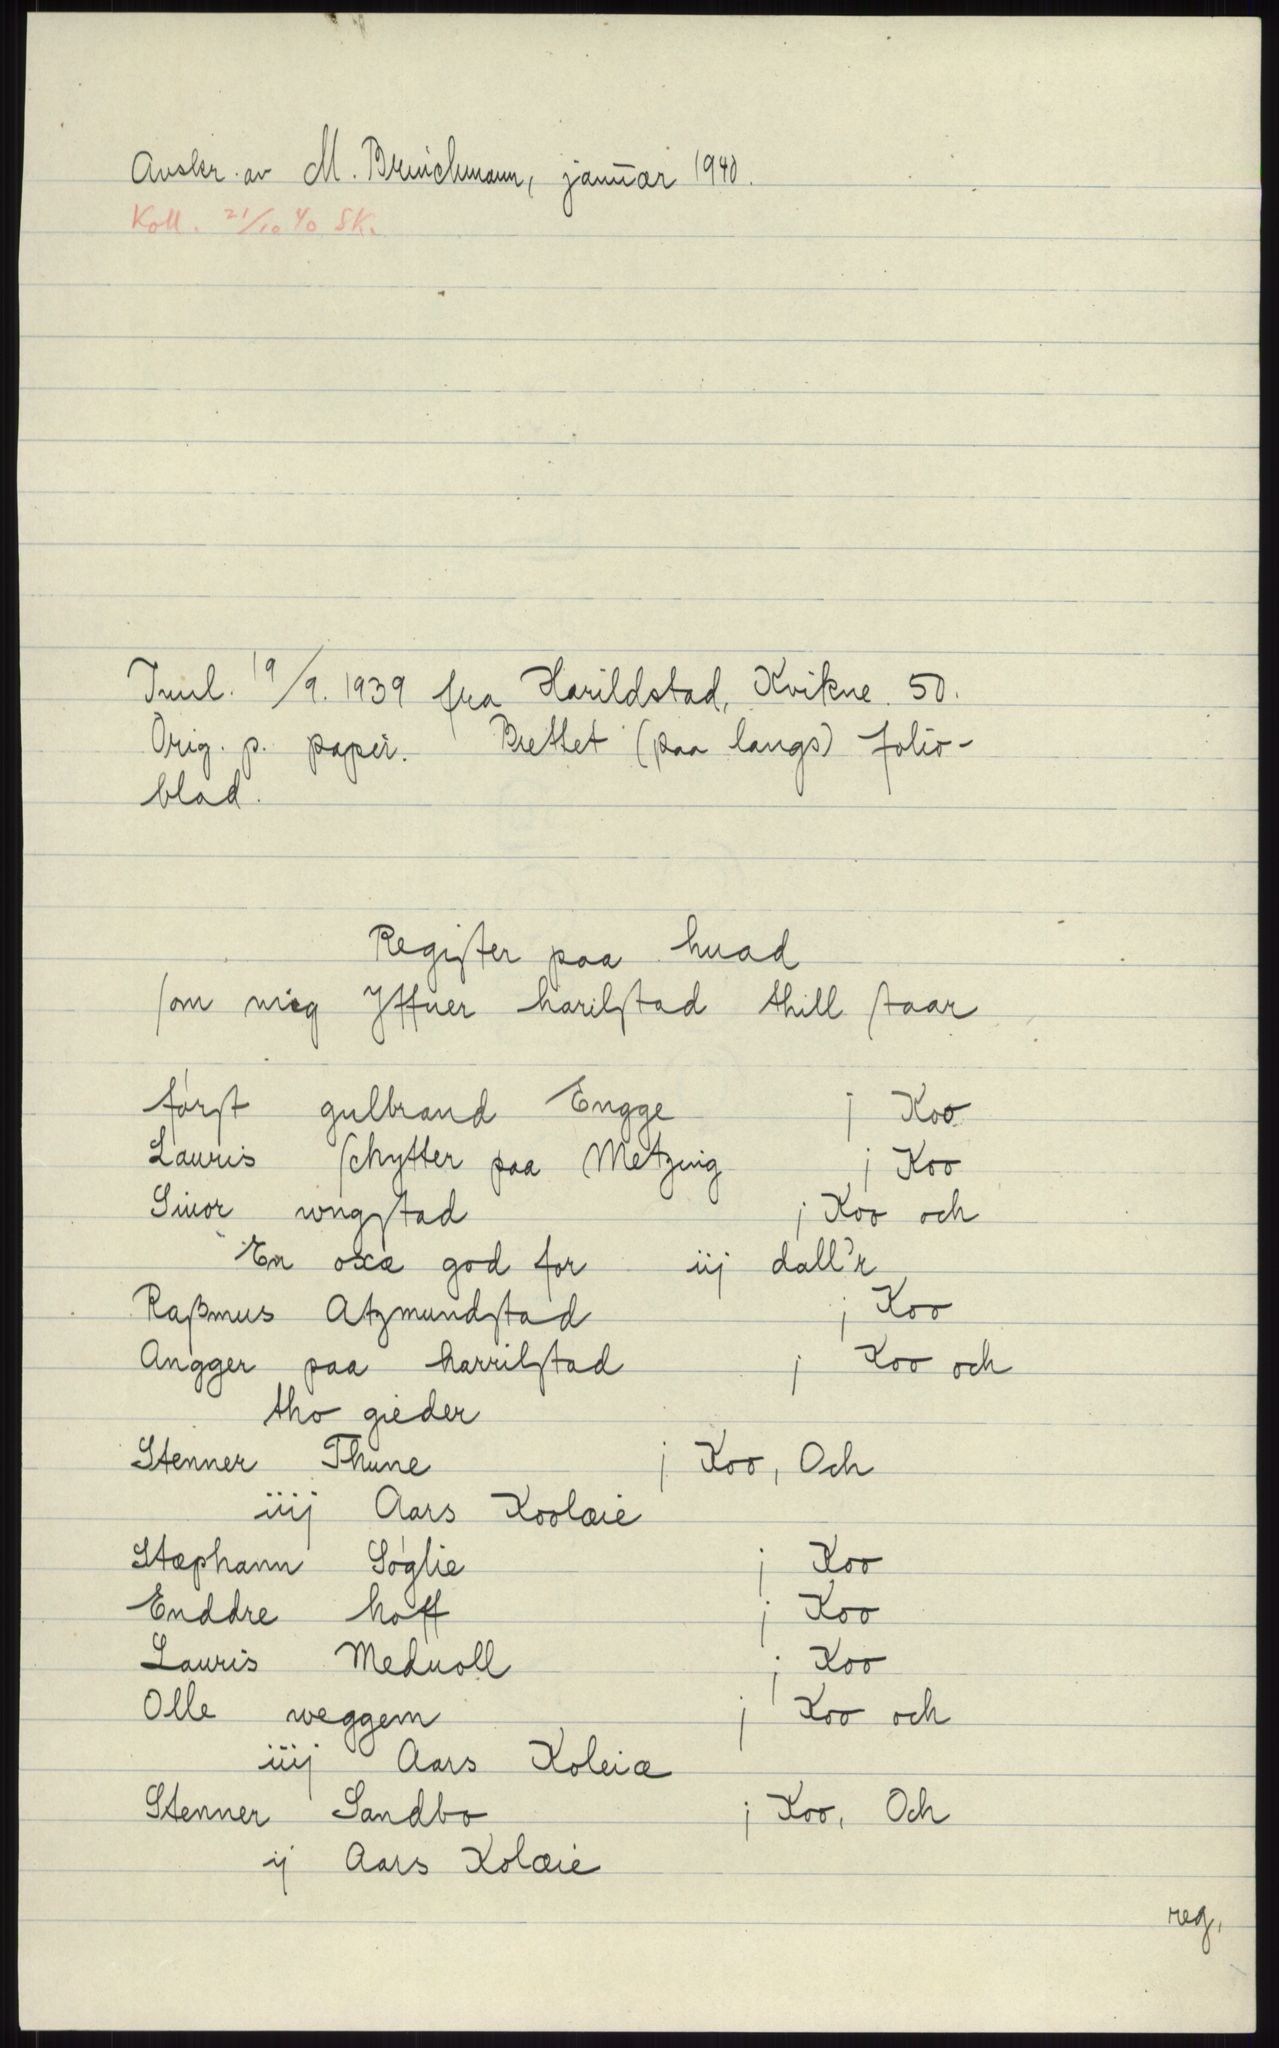 Avskr. av M. Brinchmann, januar 1940.
Koll. 21/10 40 SK.
Innl. 19/9. 1939 fra Harildstad, Kvikne 50.
Orig. p. papir. Brettet (paa langs) folio-
blad.
Regiſter paa huad
ſom mig Yffuer harilſtad thill ſtaar
førſt gulbrand Engge j Koo
Lauris ſchytter paa Metzing j Koo
Siuor wngſtad j Koo och
En oxæ god for iij dall'r
Raßmus Atzmundſtad j Koo
Angger paa harrilſtad j Koo och
tho gieder
Stenner Thune j Koo, Och
iiij Aars Koolæie
Stæphann Søglie j Koo
Enddre hoff j Koo
Lauris Meduoll j Koo
Olle weggem j Koo och
iiij Aars Koleiæ
Stenner Sandbo j Koo, Och
ij Aars Kolæie
reg.